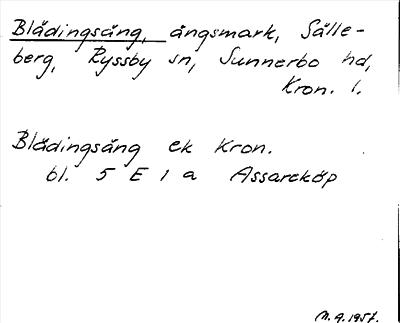 Blädingsäng, ängsmark, Sälle-
berg, Ryssby sn, Sunnerbo hd,
Kron. l.
Blädingsäng ek Kron.
bl. 5 E 1 a Assareköp
M.A. 1957.